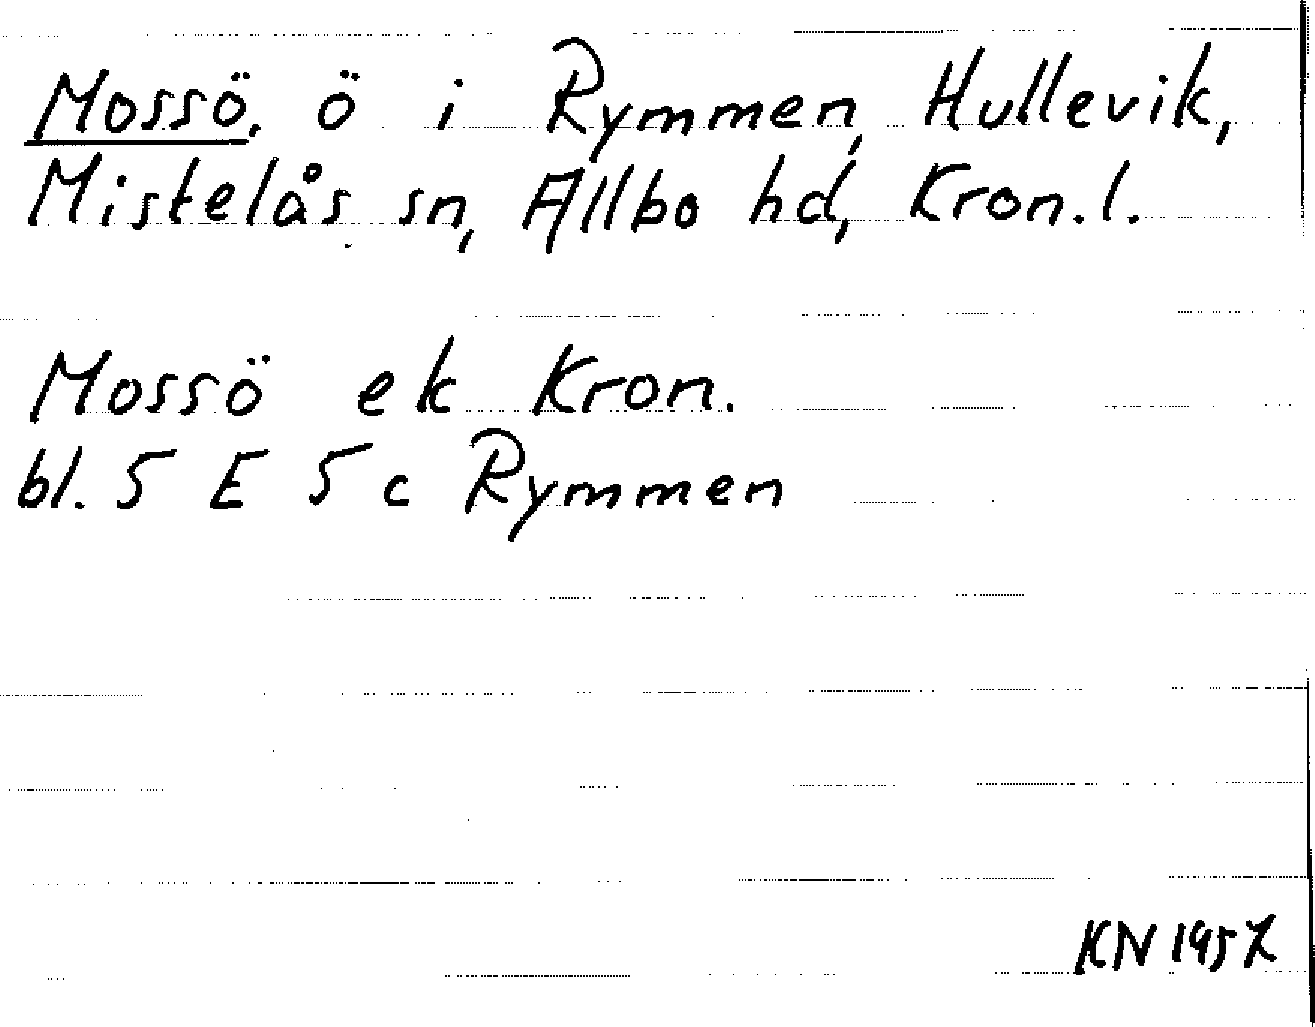 Mossö, ö i Rymmen, Hullevik,
Mistelås sn, Allbo hd, Kron.l.
Mossö ek Kron.
bl. 5 E 5 c Rymmen
KN 1957